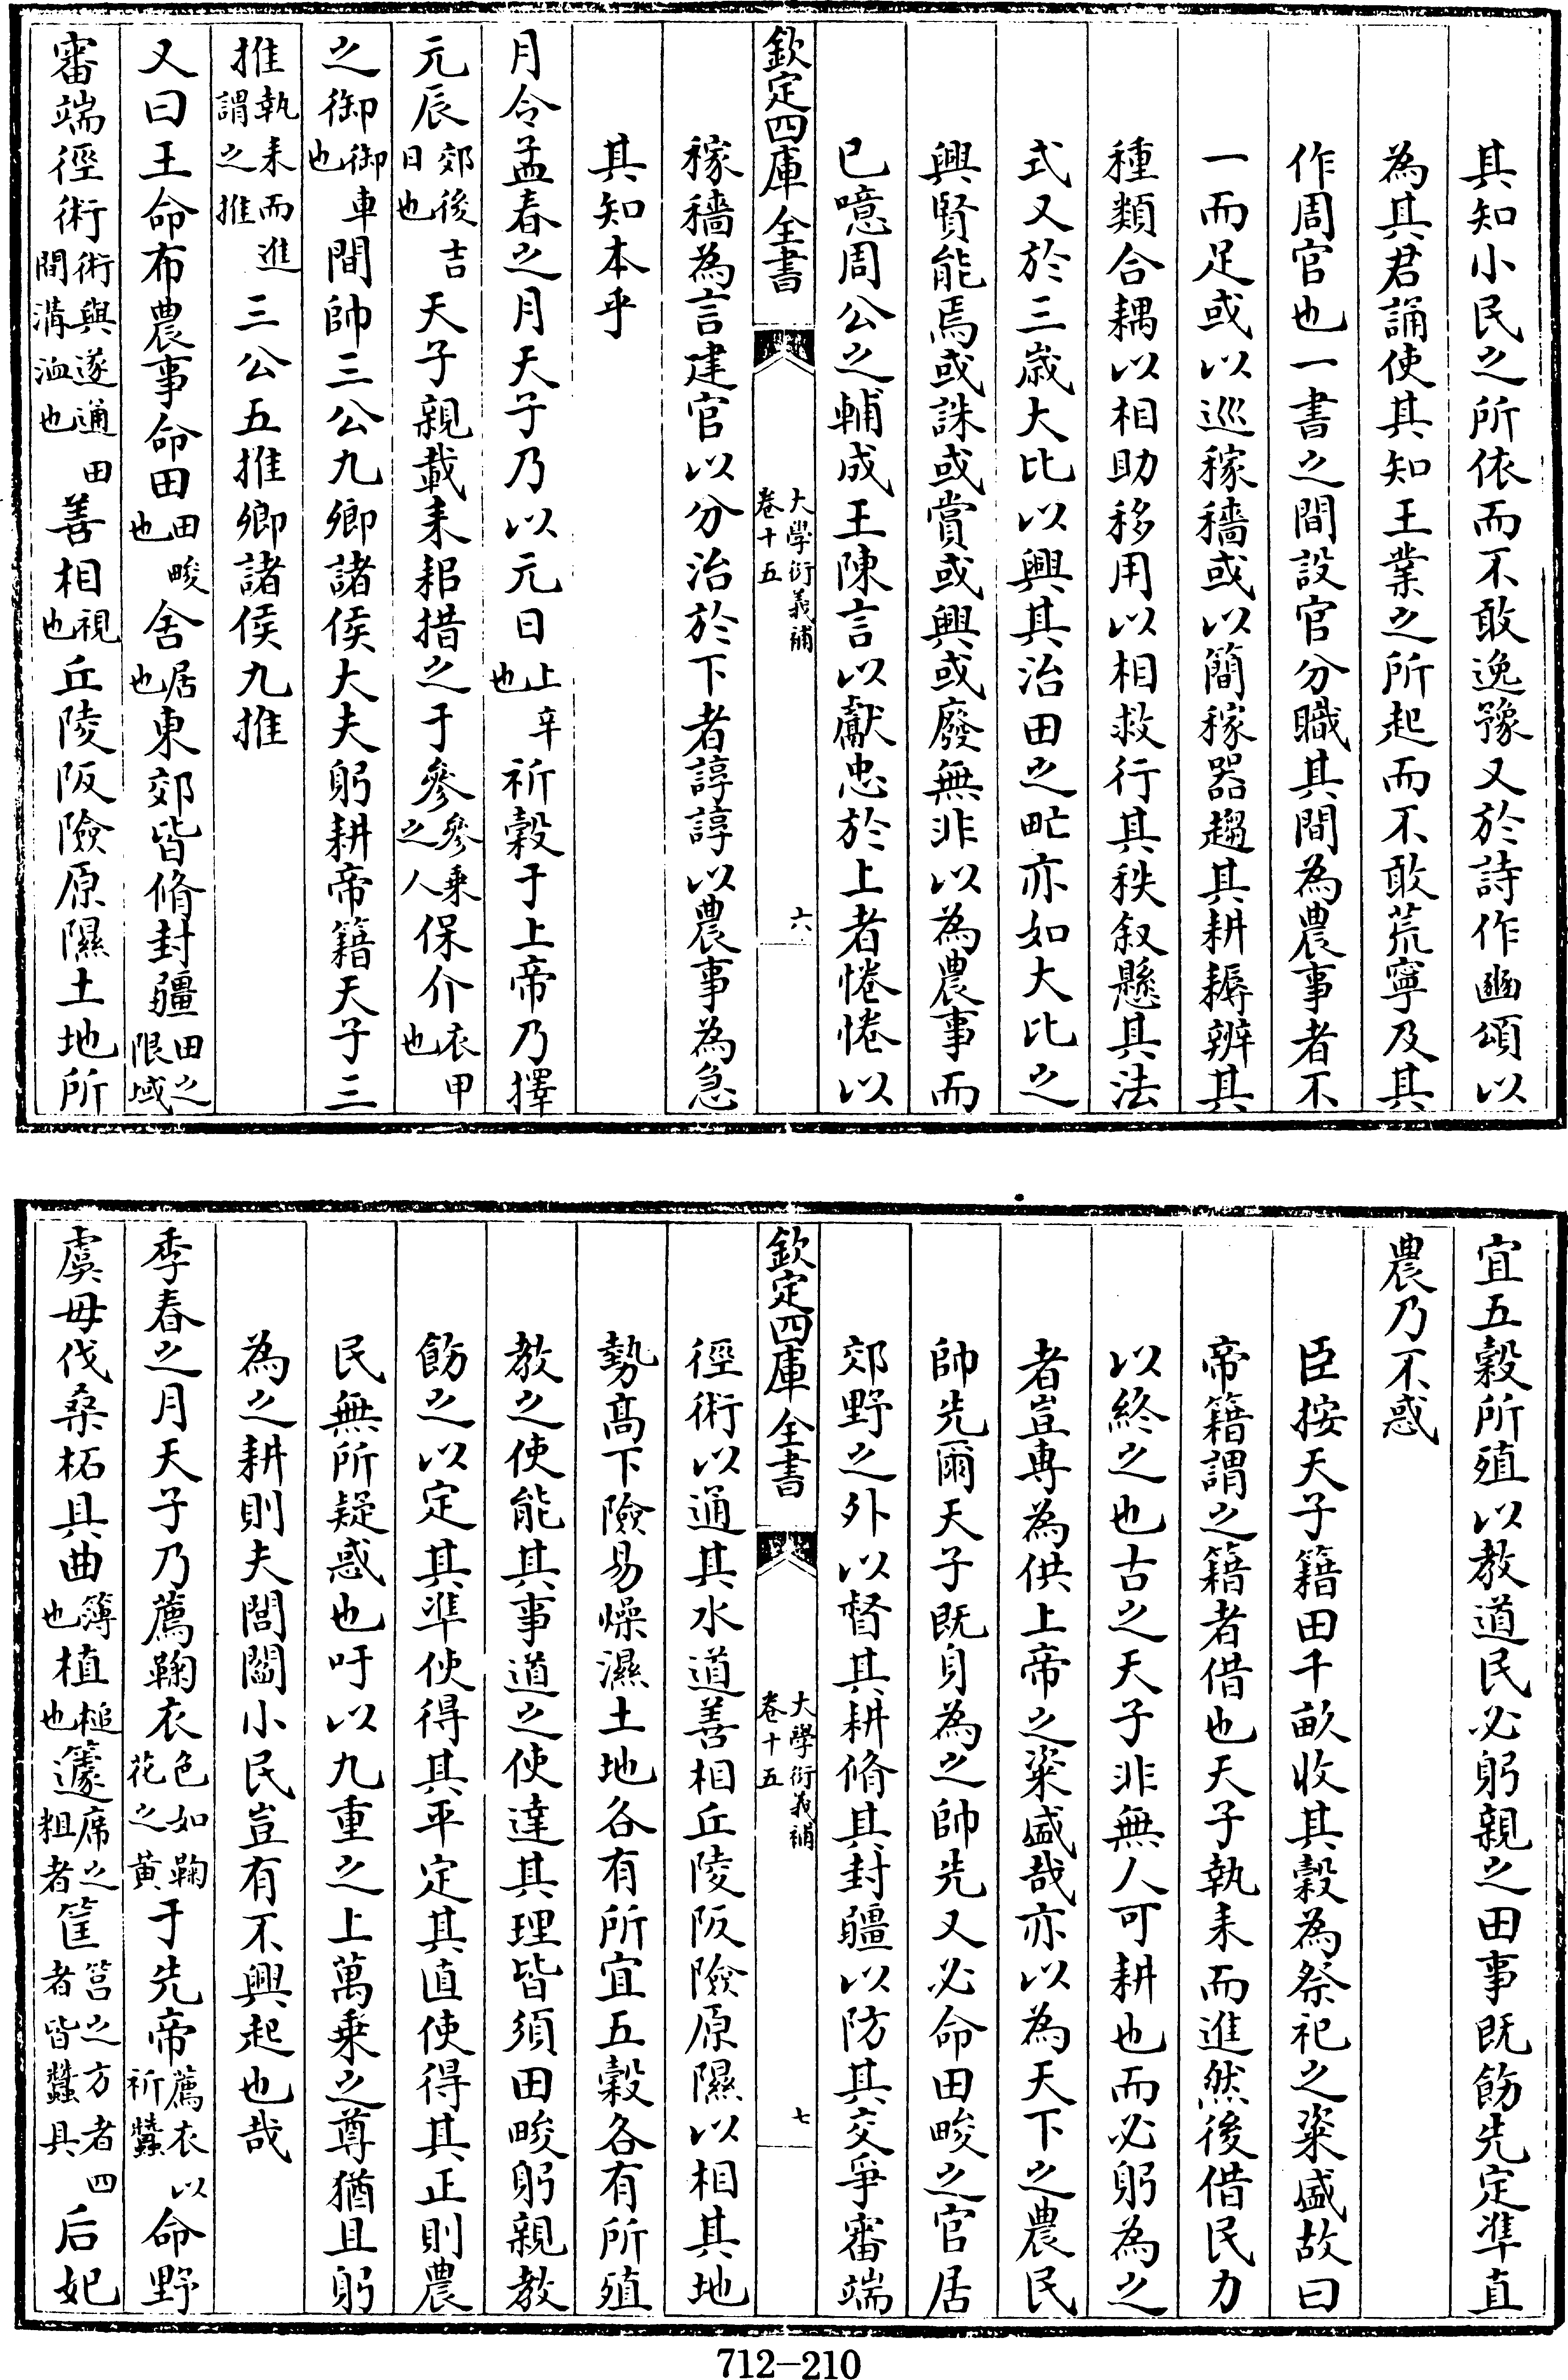 其知小民之所依而不敢逸豫又於詩作豳頌以
為其君誦使其知王業之所起而不敢荒寧及其
作周官也一書之間設官分職其間為農事者不
一而足或以巡稼穡或以簡稼器趨其耕耨辨其
種類合耦以相助移用以相救行其秩叙懸其法
式又於三歳大比以興其治田之甿亦如大比之
興賢能焉或誅或賞或興或廢無非以為農事而
已噫周公之輔成王陳言以獻忠於上者惓惓以
欽定四庫全書
大學衍義補
卷十五
六
稼穡為言建官以分治於下者諄諄以農事為急
其知本乎
月令孟春之月天子乃以元日上辛也祈穀于上帝乃擇
元辰郊後吉日也天子親載耒耜措之于參參乗之人保介衣甲也
之御御車也間帥三公九卿諸侯大夫躬耕帝籍天子三
推執耒而進謂之推三公五推卿諸侯九推
又曰王命布農事命田田畯也舍居也東郊皆脩封疆田之限域
審端徑術術與遂通田間溝洫也善相視也丘陵阪險原隰土地所
宜五穀所殖以教道民必躬親之田事既飭先定凖直
農乃不惑
臣按天子籍田千畝收其穀為祭祀之粢盛故曰
帝籍謂之籍者借也天子執耒而進然後借民力
以終之也古之天子非無人可耕也而必躬為之
者豈專為供上帝之粢盛哉亦以為天下之農民
帥先爾天子既身為之帥先又必命田畯之官居
郊野之外以督其耕脩其封疆以防其交爭審端
欽定四庫全書
大學衍義補
卷十五
七
徑術以通其水道善相丘陵阪險原隰以相其地
勢髙下險易燥濕土地各有所宜五穀各有所殖
教之使能其事道之使達其理皆須田畯躬親教
飭之以定其凖使得其平定其直使得其正則農
民無所疑惑也吁以九重之上萬乗之尊猶且躬
為之耕則夫閭閻小民豈有不興起也哉
季春之月天子乃薦鞠衣色如鞠花之黄于先帝薦衣以祈蠶命野
虞毋伐桑柘具曲簿也植槌也籧席之粗者筐筥之方者四者皆蠶具后妃
712-210